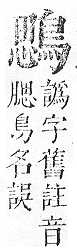 譌字舊註音
腮鳥名誤